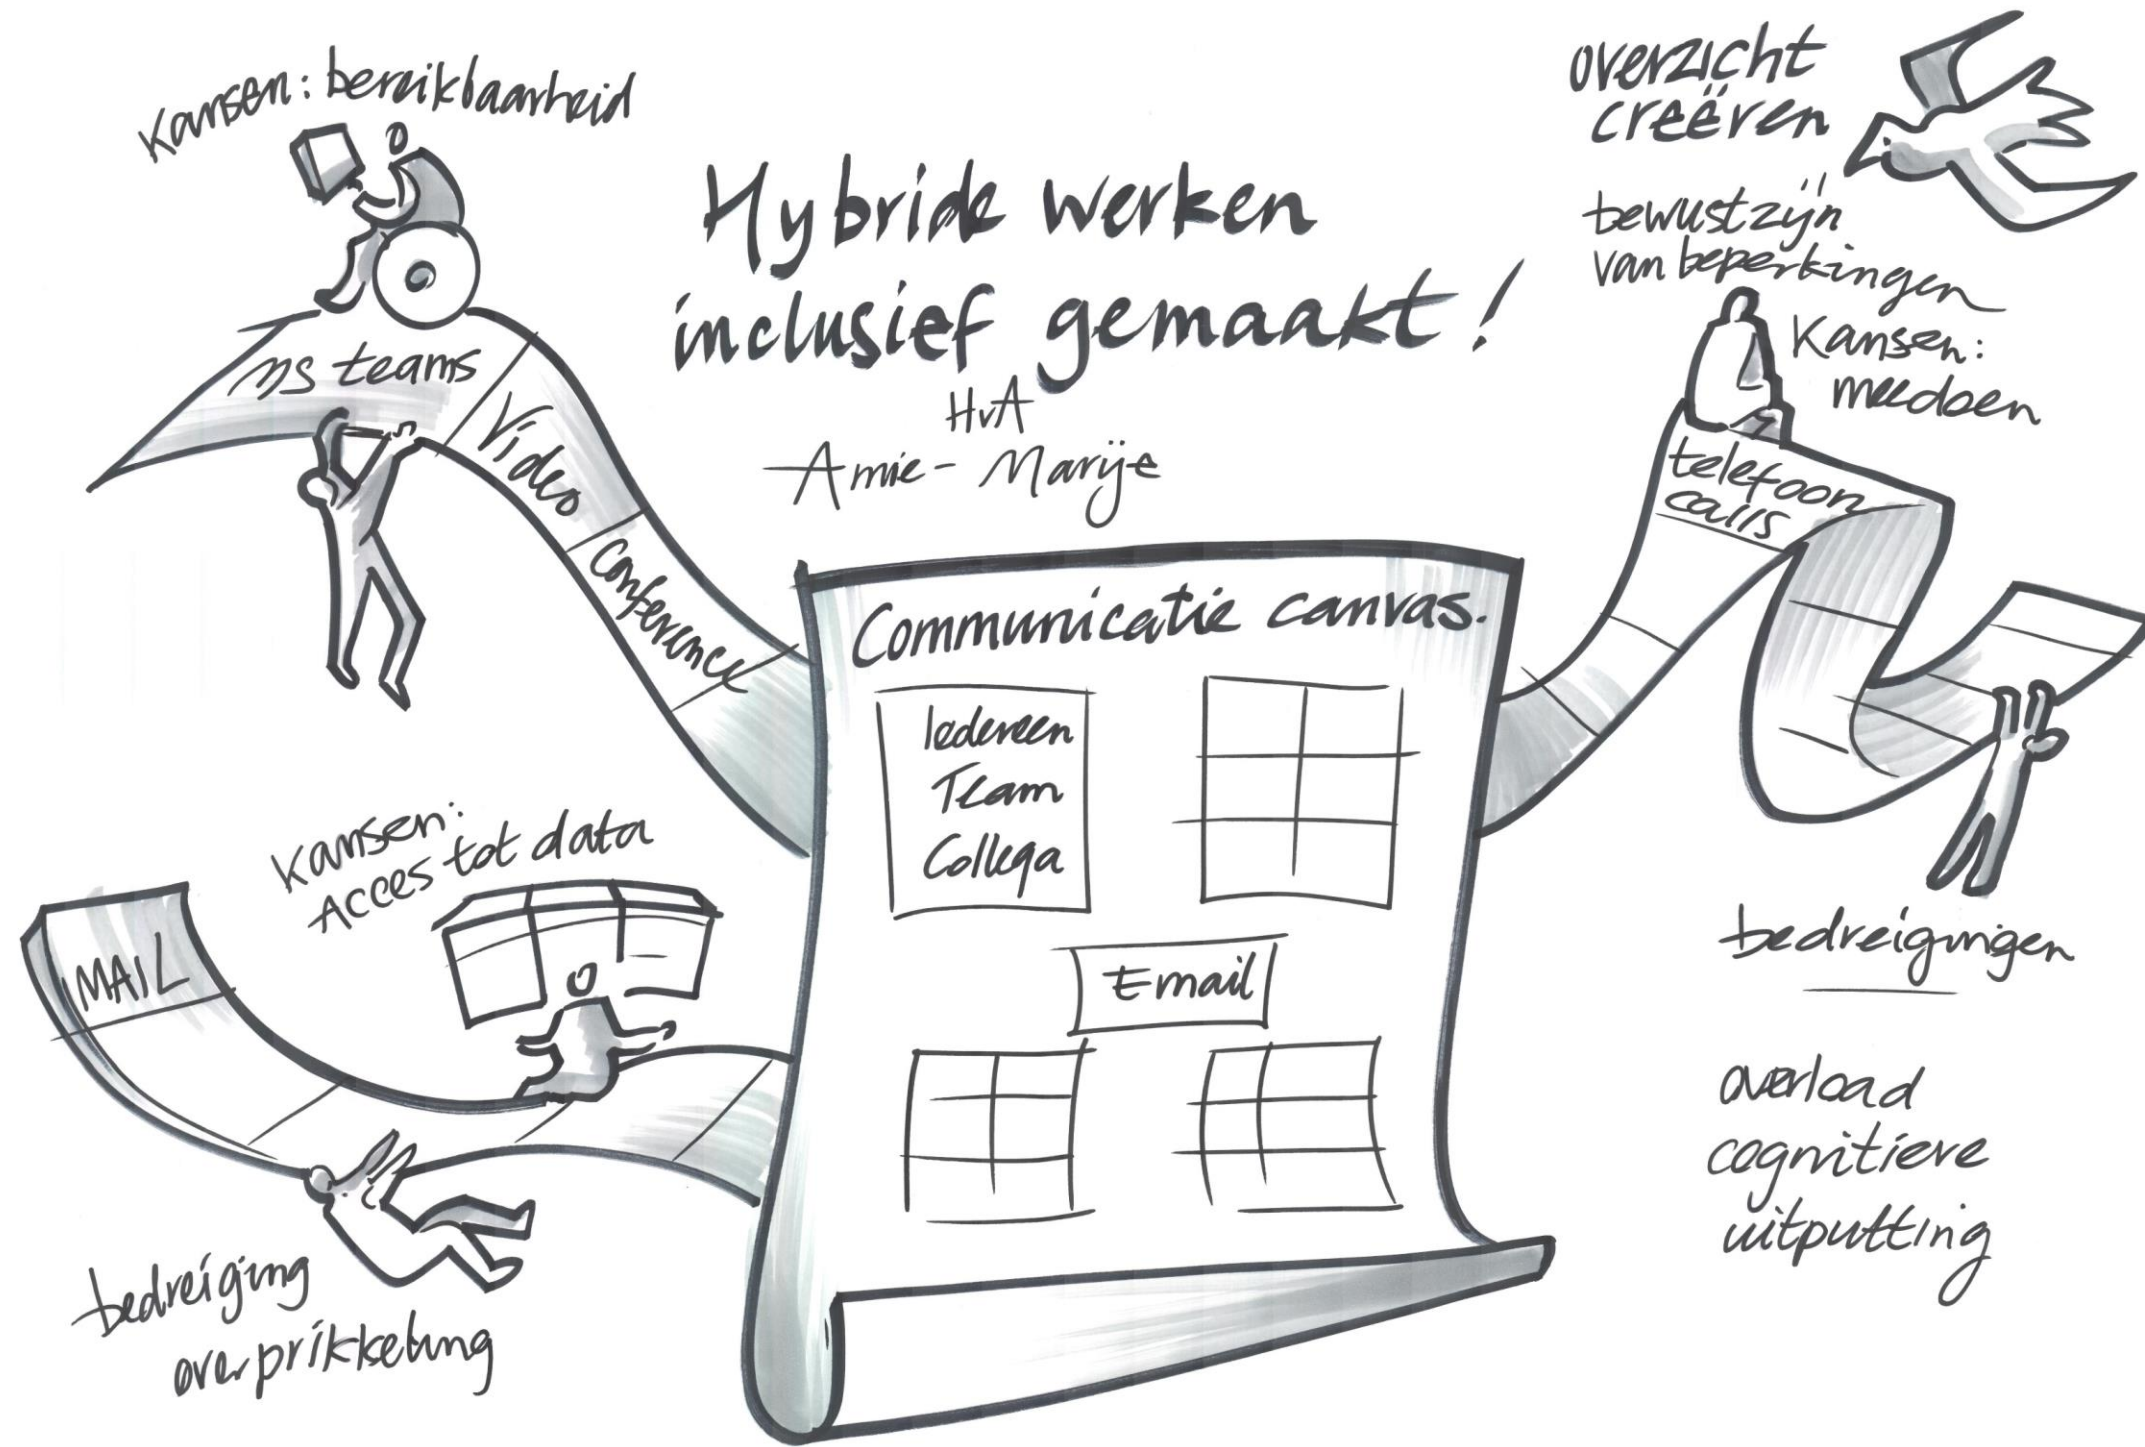 Kansen: bereikbaarheid
Hybride werken
inclusief gemaakt!
HvA
Amie-Marije
overzicht
creëren
bewustzijn
van beperkingen
Kansen:
meedoen
ms teams
Video
Conference
telefoon
calls
Communicatie canvas.
Iedereen
Team
Collega
Email
Kansen:
Acces tot data
MAIL
bedreiging
overprikkeling
bedreigingen
overload
cognitieve
uitputting